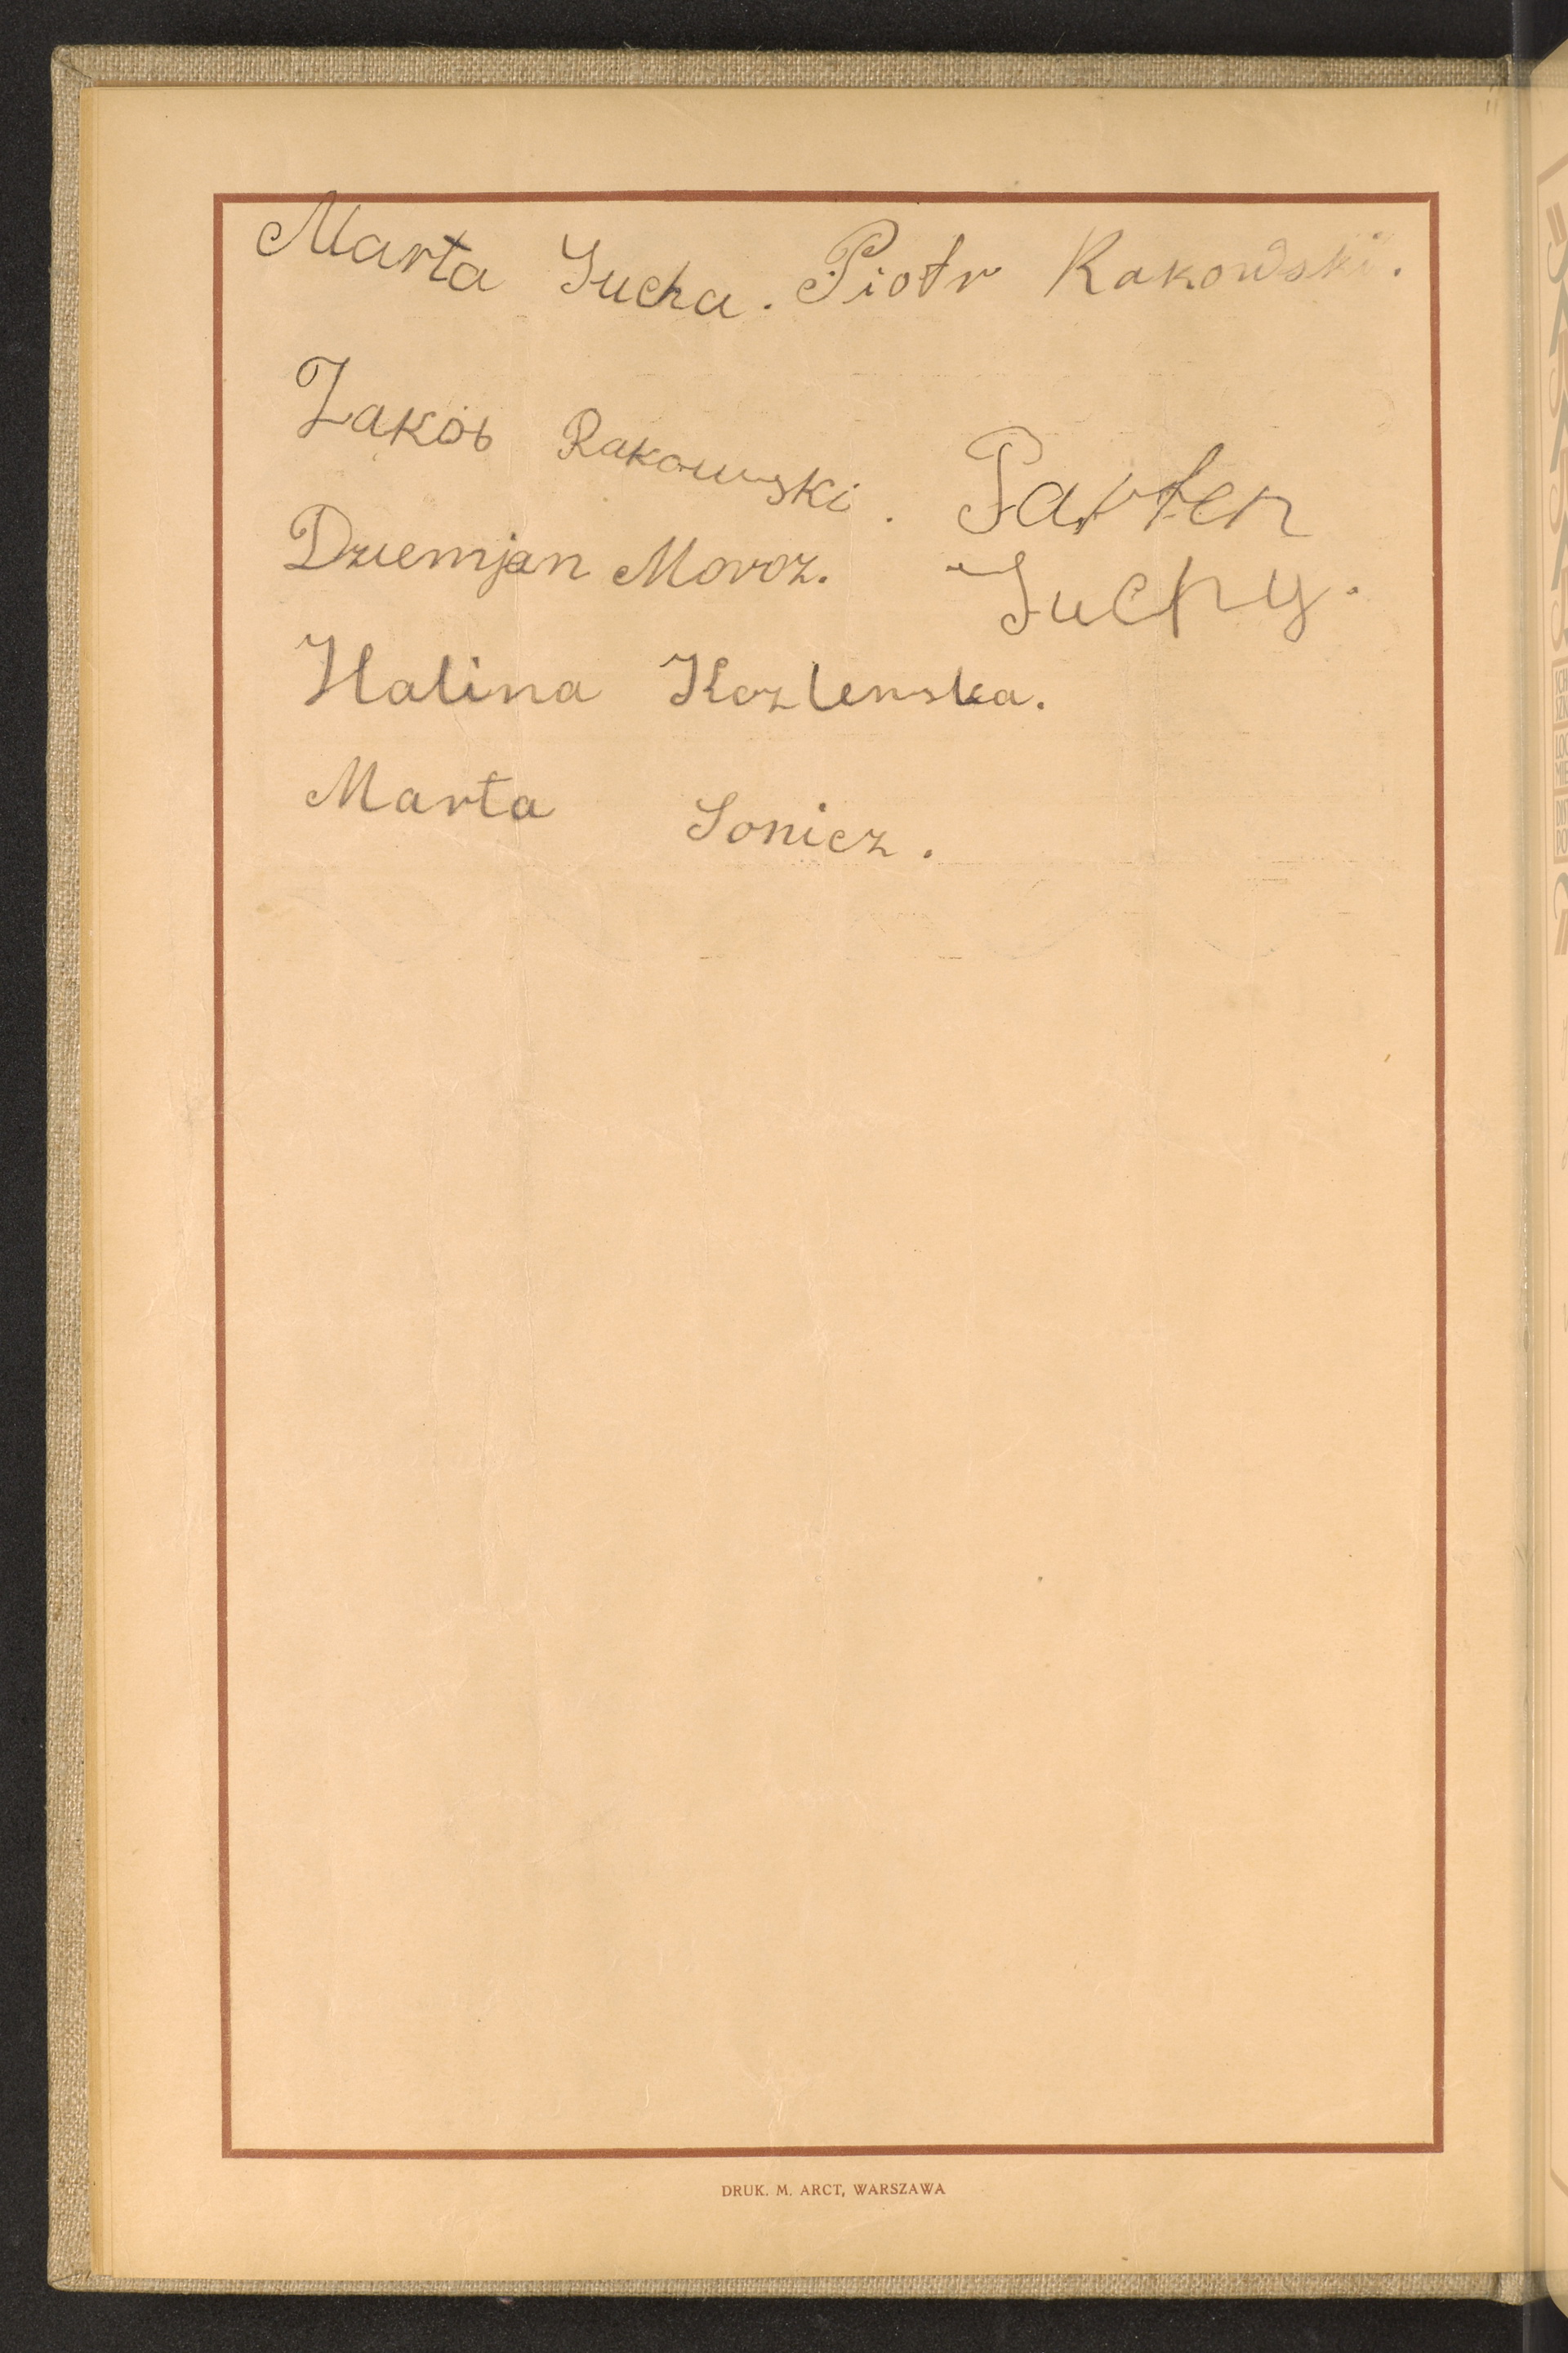 Marta Sucha. Piotr Rakowski.
Jakób Rakowski.
Parten
Dziemjan Moroz.
Suchy.
Halina Kozlenska.
Marta Sonicz.
DRUK. M. ARCT, WARSZAWA